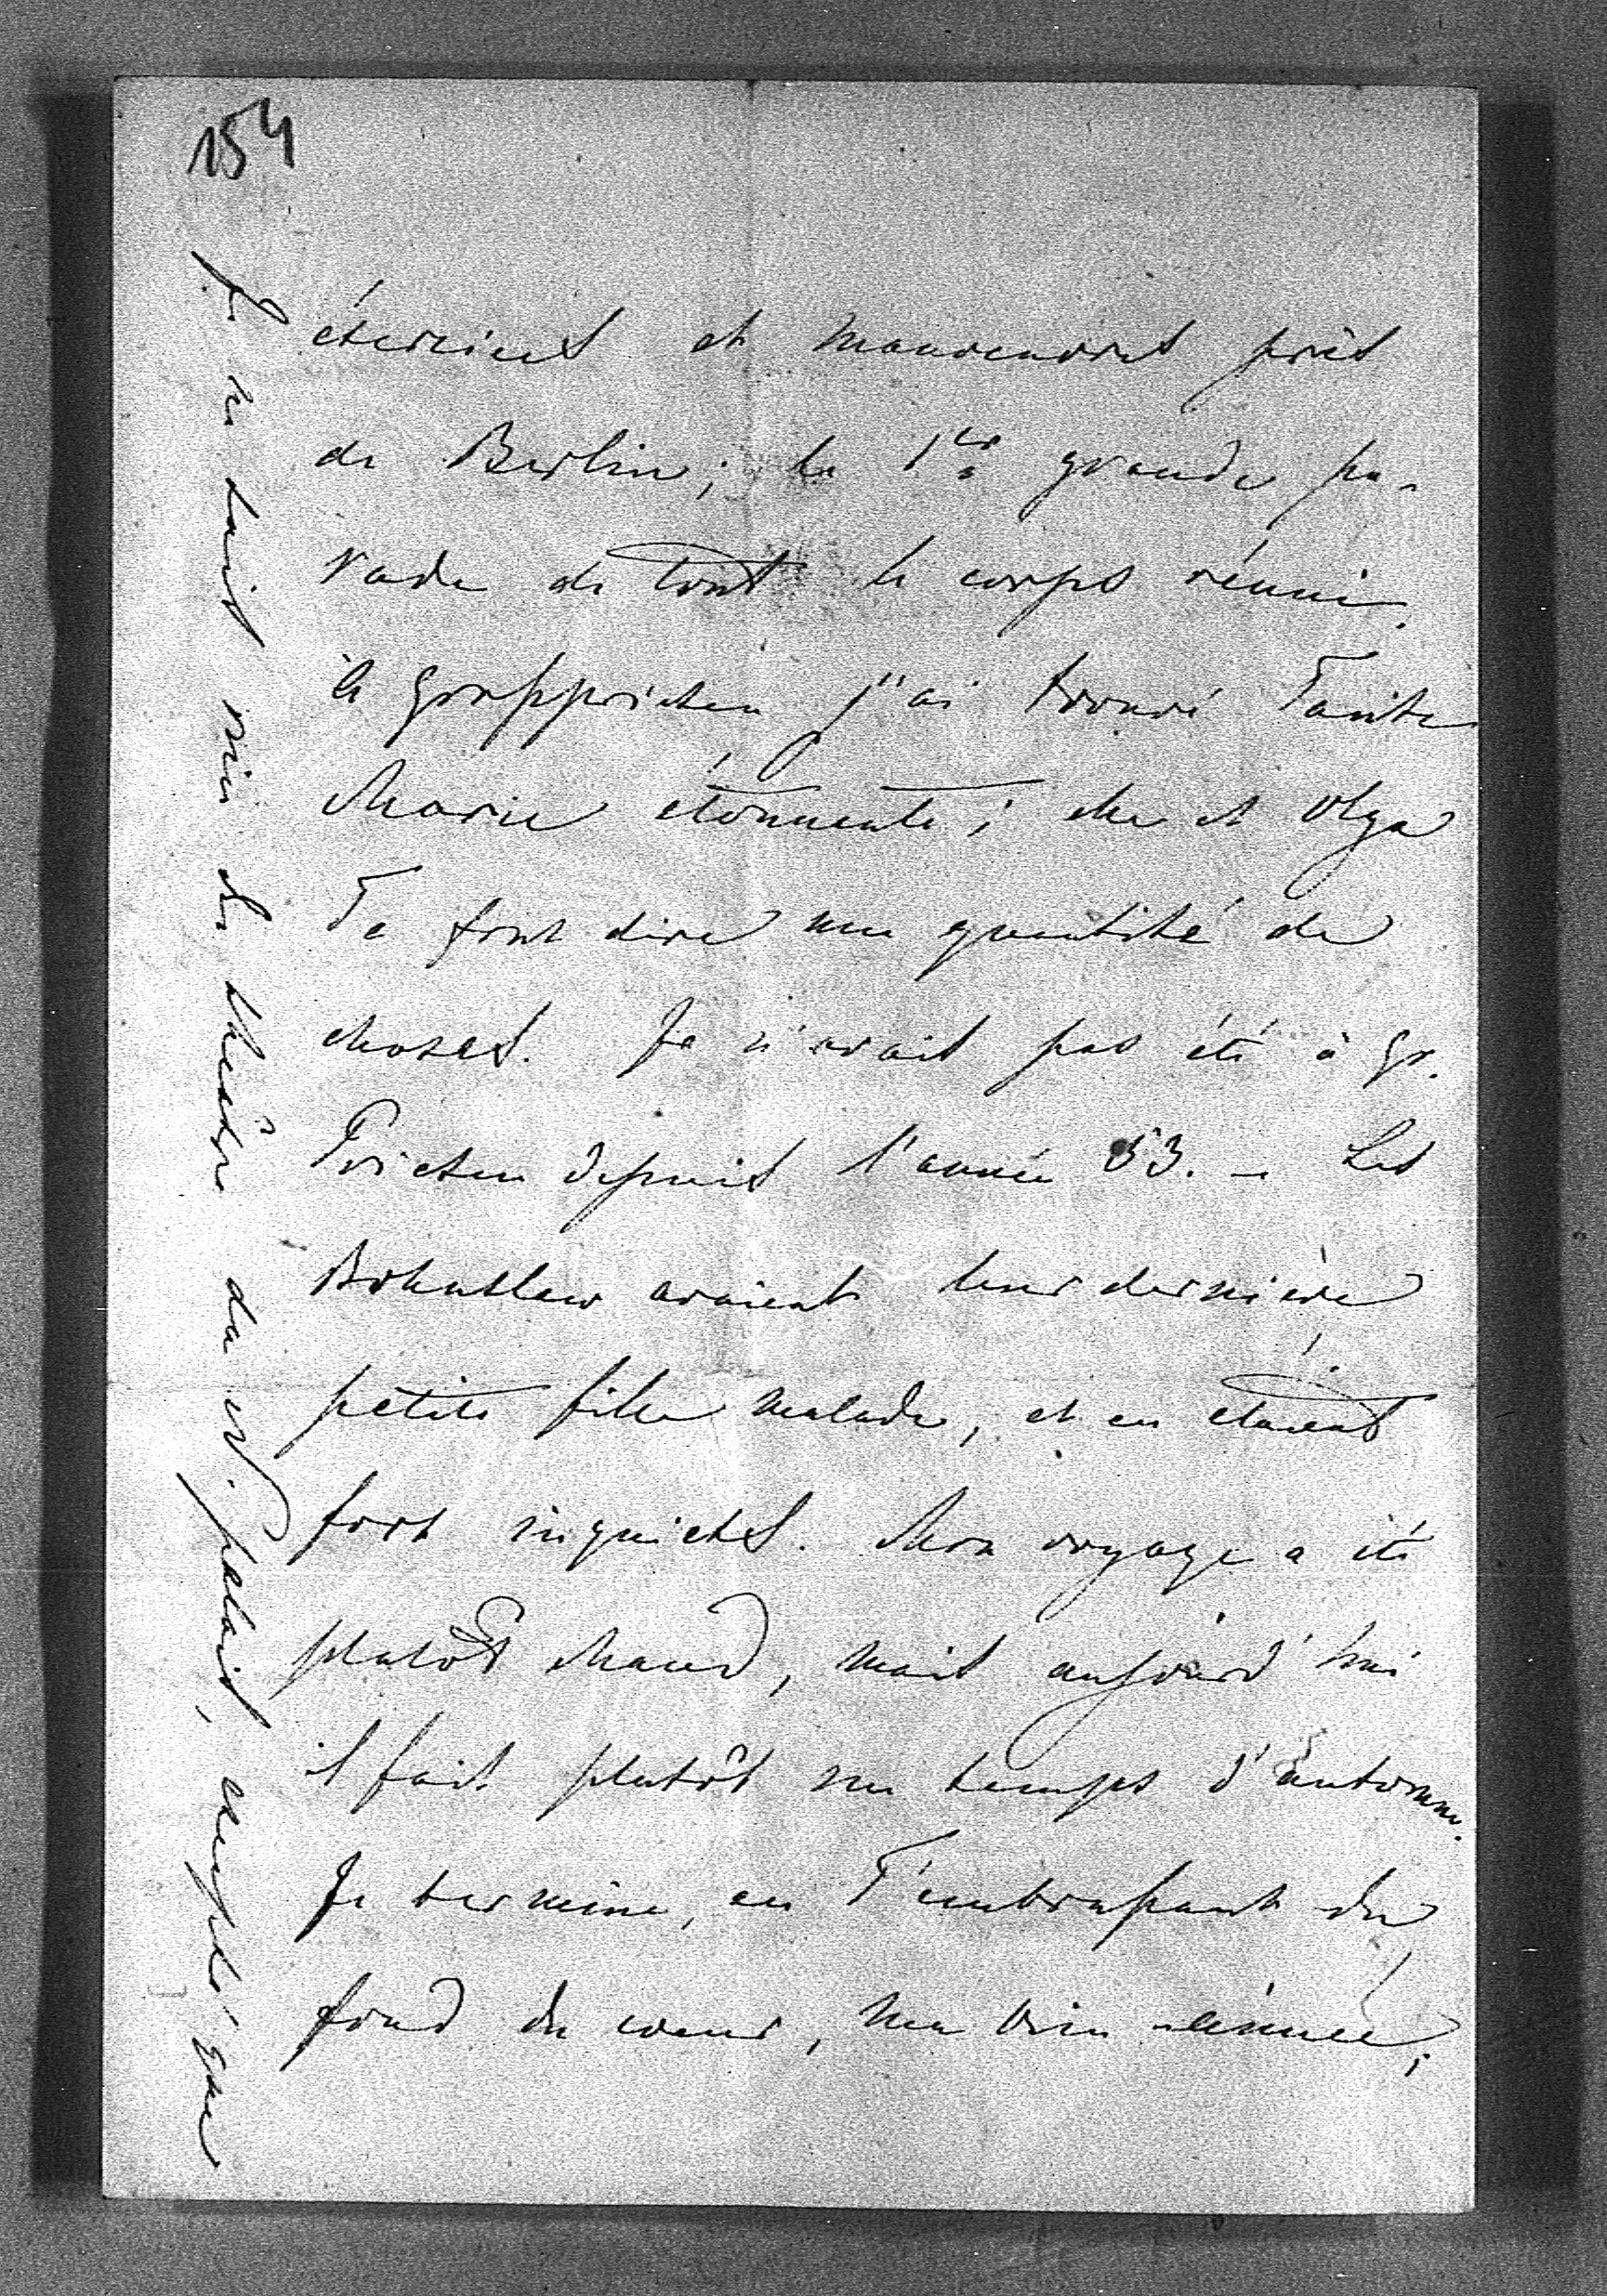 154
éxercices et manoeuvres près
de Berlin; la 1ère grande pa-
rade de tout le corps réuni.
à Grosspriesen j'ai trouvé Tante
Marie étonnante; elle et Olga
Te font dire une quantité de
choses. Je n'avais pas été à Gr.
Priesen depuis l'année 83. - Les
Bohuslaw avaient leur dernière
petite fille malade, et en étaient
fort inquiets. Mon voyage a été
plutôt chaud, mais aujourd'hui
il fait plutôt un temps d'automne.
Je termine, en T'embrassant du
fond du coeur, ma bien aimée,
Je ne savais rien du théâtre du N. palais, excepté que